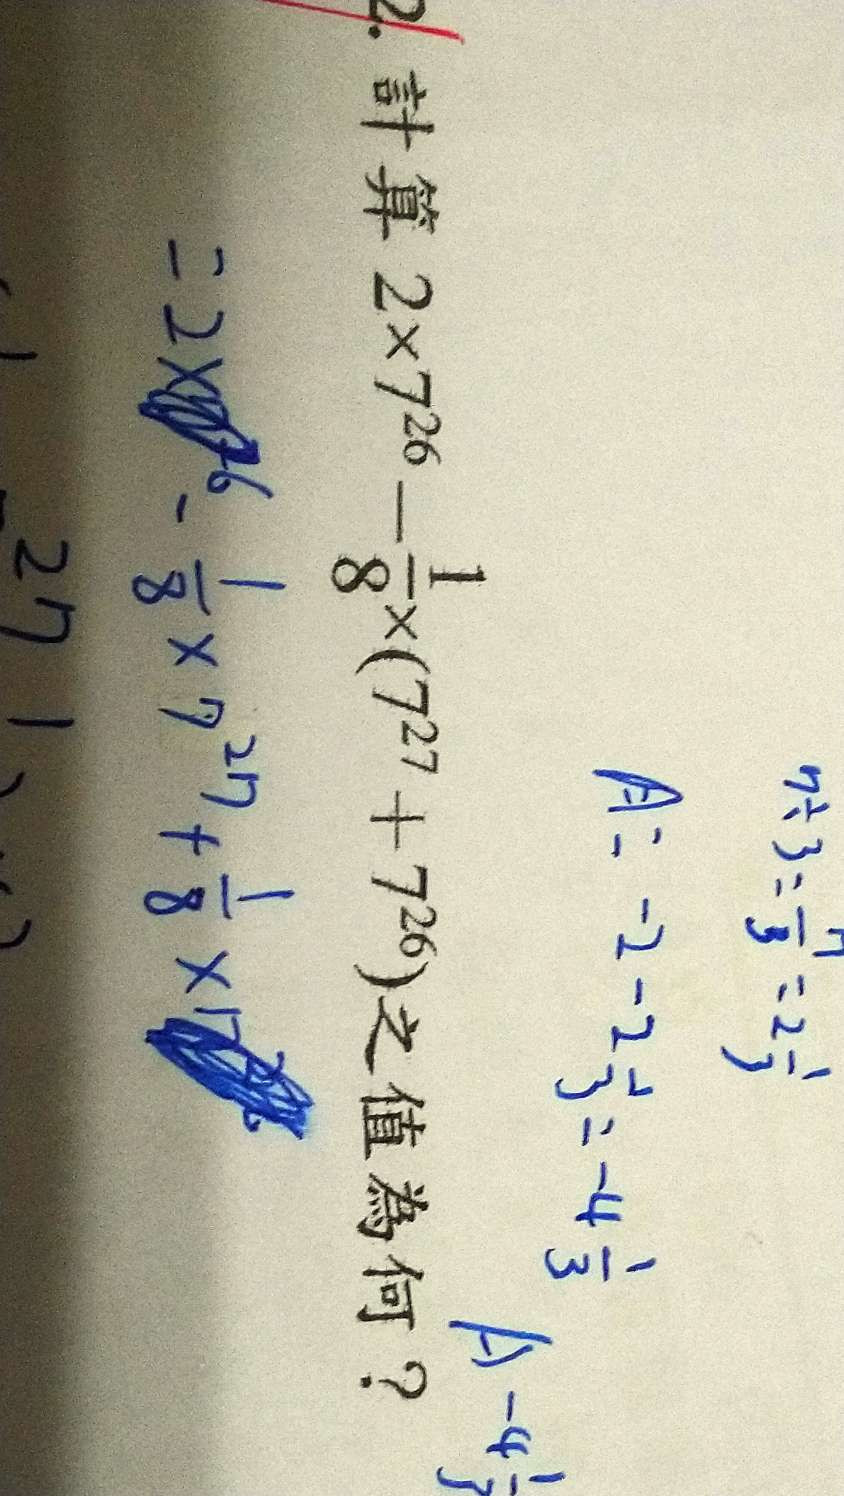 7÷3=7/3=2 1/3
A= -2-2 1/3=-4 1/3
A -4 1/3
2. 計算 2×7²⁶－1/8×(7²⁷＋7²⁶)之值為何？
=2× - 1/8 × 7²⁷ + 1/8 ×